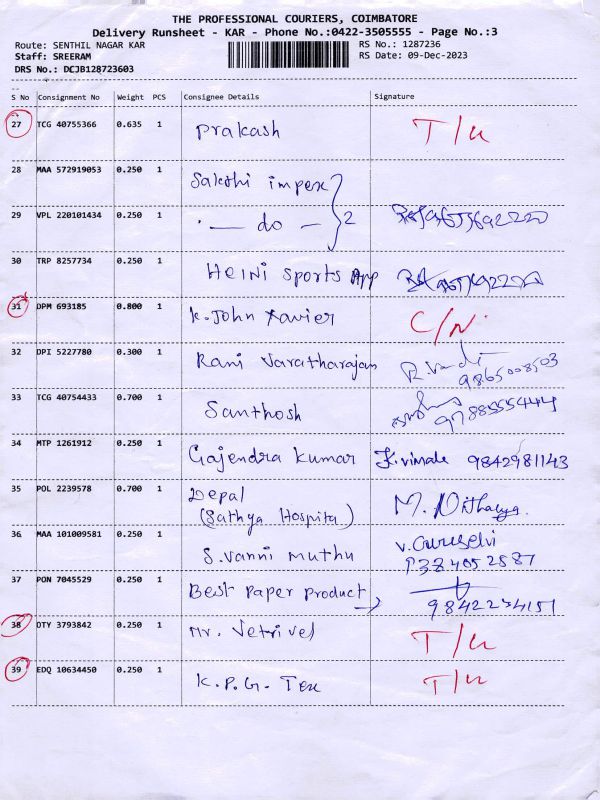 THE PROFESSIONAL COURIERS, COIMBATORE
Delivery Runsheet - KAR - Phone No.:0422-3505555 - Page No.:3
Route: SENTHIL NAGAR KAR
RS No.: 1287236
Staff: SREERAM
RS Date: 09-Dec-2023
DRS No.: DCJB128723603
S No Consignment No Weight PCS Consignee Details Signature
27 TCG 40755366 0.635 1 Prakash T/U
28 MAA 572919053 0.250 1 Sakthi impex
29 VPL 220101434 0.250 1 - do - 2
30 TRP 8257734 0.250 1 HEINI Sports App
31 DPM 693185 0.800 1 K. John Xavier C/N
32 DPI 5227780 0.300 1 Rani Varatharajan 9865008503
33 TCG 40754433 0.700 1 Santhosh 9788555444
34 MTP 1261912 0.250 1 Gajendra Kumar K.vimala 9842981143
35 POL 2239578 0.700 1 Depal
(Sathya Hospital) M. Nithaya
36 MAA 101009581 0.250 1 S. Vanni Muthu V. Guruselvi
37 PON 7045529 0.250 1 Best Paper Product 9842234151
38 OTY 3793842 0.250 1 Mr. Vetrivel T/U
39 EDQ 10634450 0.250 1 K.P.G. Tex T/U